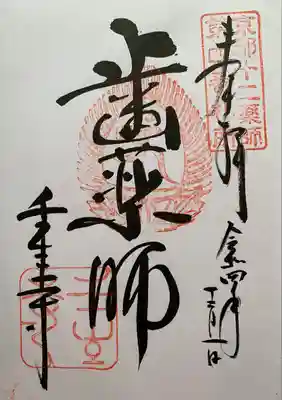 京都十二薬師
奉拝
令和四年
十二月一日
歯薬師
壬生寺